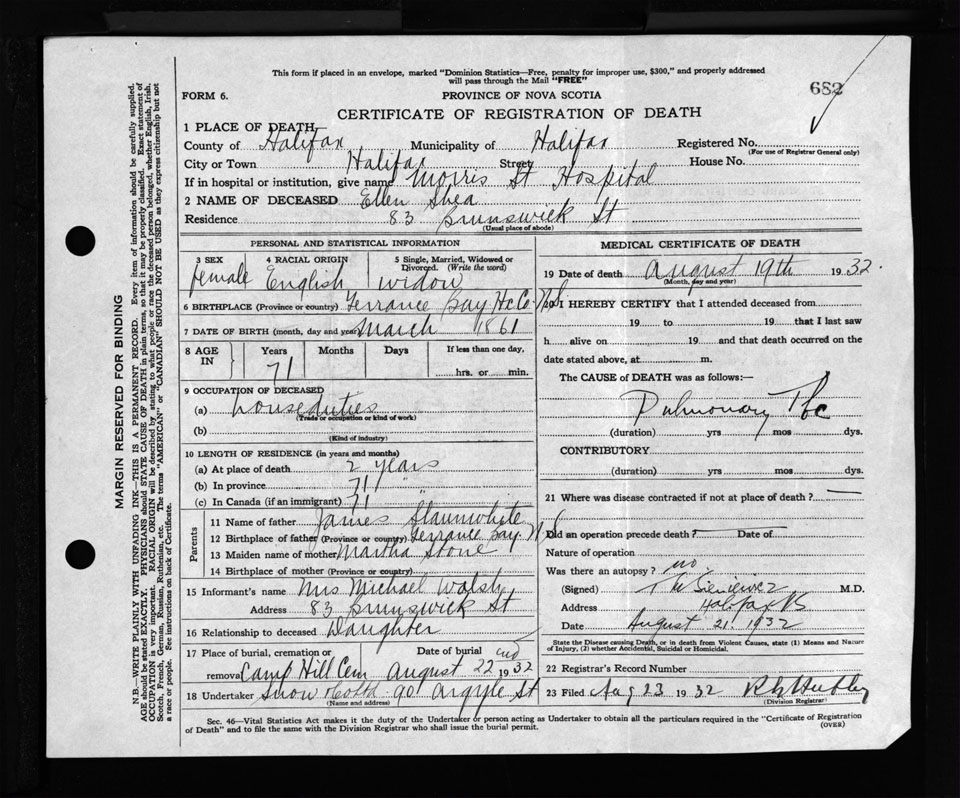 This form if placed in an envelope, marked "Dominion Statistics—Free, penalty for improper use, $300," and properly addressed
will pass through the Mail "FREE"
682
FORM 6.
PROVINCE OF NOVA SCOTIA
CERTIFICATE OF REGISTRATION OF DEATH
1 PLACE OF DEATH
County of Halifax Municipality of Halifax Registered No.
(For use of Registrar General only)
City or Town Halifax Street House No.
If in hospital or institution, give name Morris St Hospital
2 NAME OF DECEASED Ellen Shea
Residence 83 Brunswick St
(Usual place of abode)
PERSONAL AND STATISTICAL INFORMATION
3 SEX 4 RACIAL ORIGIN 5 Single, Married, Widowed or
Divorced. (Write the word)
female English widow
6 BIRTHPLACE (Province or country) Terrance Bay Hx Co N.S.
7 DATE OF BIRTH (month, day and year) March 1861
8 AGE IN Years Months Days If less than one day,
71 hrs. or min.
9 OCCUPATION OF DECEASED
(a) houseduties
(Trade or occupation or kind of work)
(b)
(Kind of industry)
10 LENGTH OF RESIDENCE (in years and months)
(a) At place of death 2 years
(b) In province 71 "
(c) In Canada (if an immigrant) 71
Parents
11 Name of father James Slaunwhite
12 Birthplace of father (Province or country) Terrance Bay. N.S
13 Maiden name of mother Martha Stone
14 Birthplace of mother (Province or country)
15 Informant's name Mrs Michael Walsh
Address 83 Brunswick St
16 Relationship to deceased Daughter
17 Place of burial, cremation or Date of burial
removal Camp Hill Cem August 22 nd 1932
18 Undertaker Snow & Co Ltd 90 Argyle St
(Name and address)
MEDICAL CERTIFICATE OF DEATH
19 Date of death August 19th 1932.
(Month, day and year)
20 I HEREBY CERTIFY that I attended deceased from
19 to 19 that I last saw
h alive on 19 and that death occurred on the
date stated above, at m.
The CAUSE of DEATH was as follows:—
Pulmonary Tbc
(duration) yrs mos dys.
CONTRIBUTORY
(duration) yrs mos dys.
21 Where was disease contracted if not at place of death? —
Did an operation precede death? — Date of
Nature of operation
Was there an autopsy? no
(Signed) T M Sieniewicz M.D.
Address Halifax NS
Date August 21. 1932
State the Disease causing Death, or in death from Violent Causes, state (1) Means and Nature
of Injury, (2) whether Accidental, Suicidal or Homicidal.
22 Registrar's Record Number
23 Filed Aug 23 1932
(Division Registrar)
Sec. 46—Vital Statistics Act makes it the duty of the Undertaker or person acting as Undertaker to obtain all the particulars required in the "Certificate of Registration
of Death" and to file the same with the Division Registrar who shall issue the burial permit.
(OVER)
MARGIN RESERVED FOR BINDING
N.B.—WRITE PLAINLY WITH UNFADING INK—THIS IS A PERMANENT RECORD. Every item of information should be carefully supplied.
AGE should be stated EXACTLY. PHYSICIANS should STATE CAUSE OF DEATH in plain terms, so that it may be properly classified. Exact statement of
OCCUPATION is very important. RACIAL ORIGIN will be described by stating to what people or race the deceased person belonged, whether English, Irish,
Scotch, French, German, Russian, Ruthenian, etc. The terms "AMERICAN" or "CANADIAN" SHOULD NOT BE USED as they express citizenship but not
a race or people. See instructions on back of Certificate.